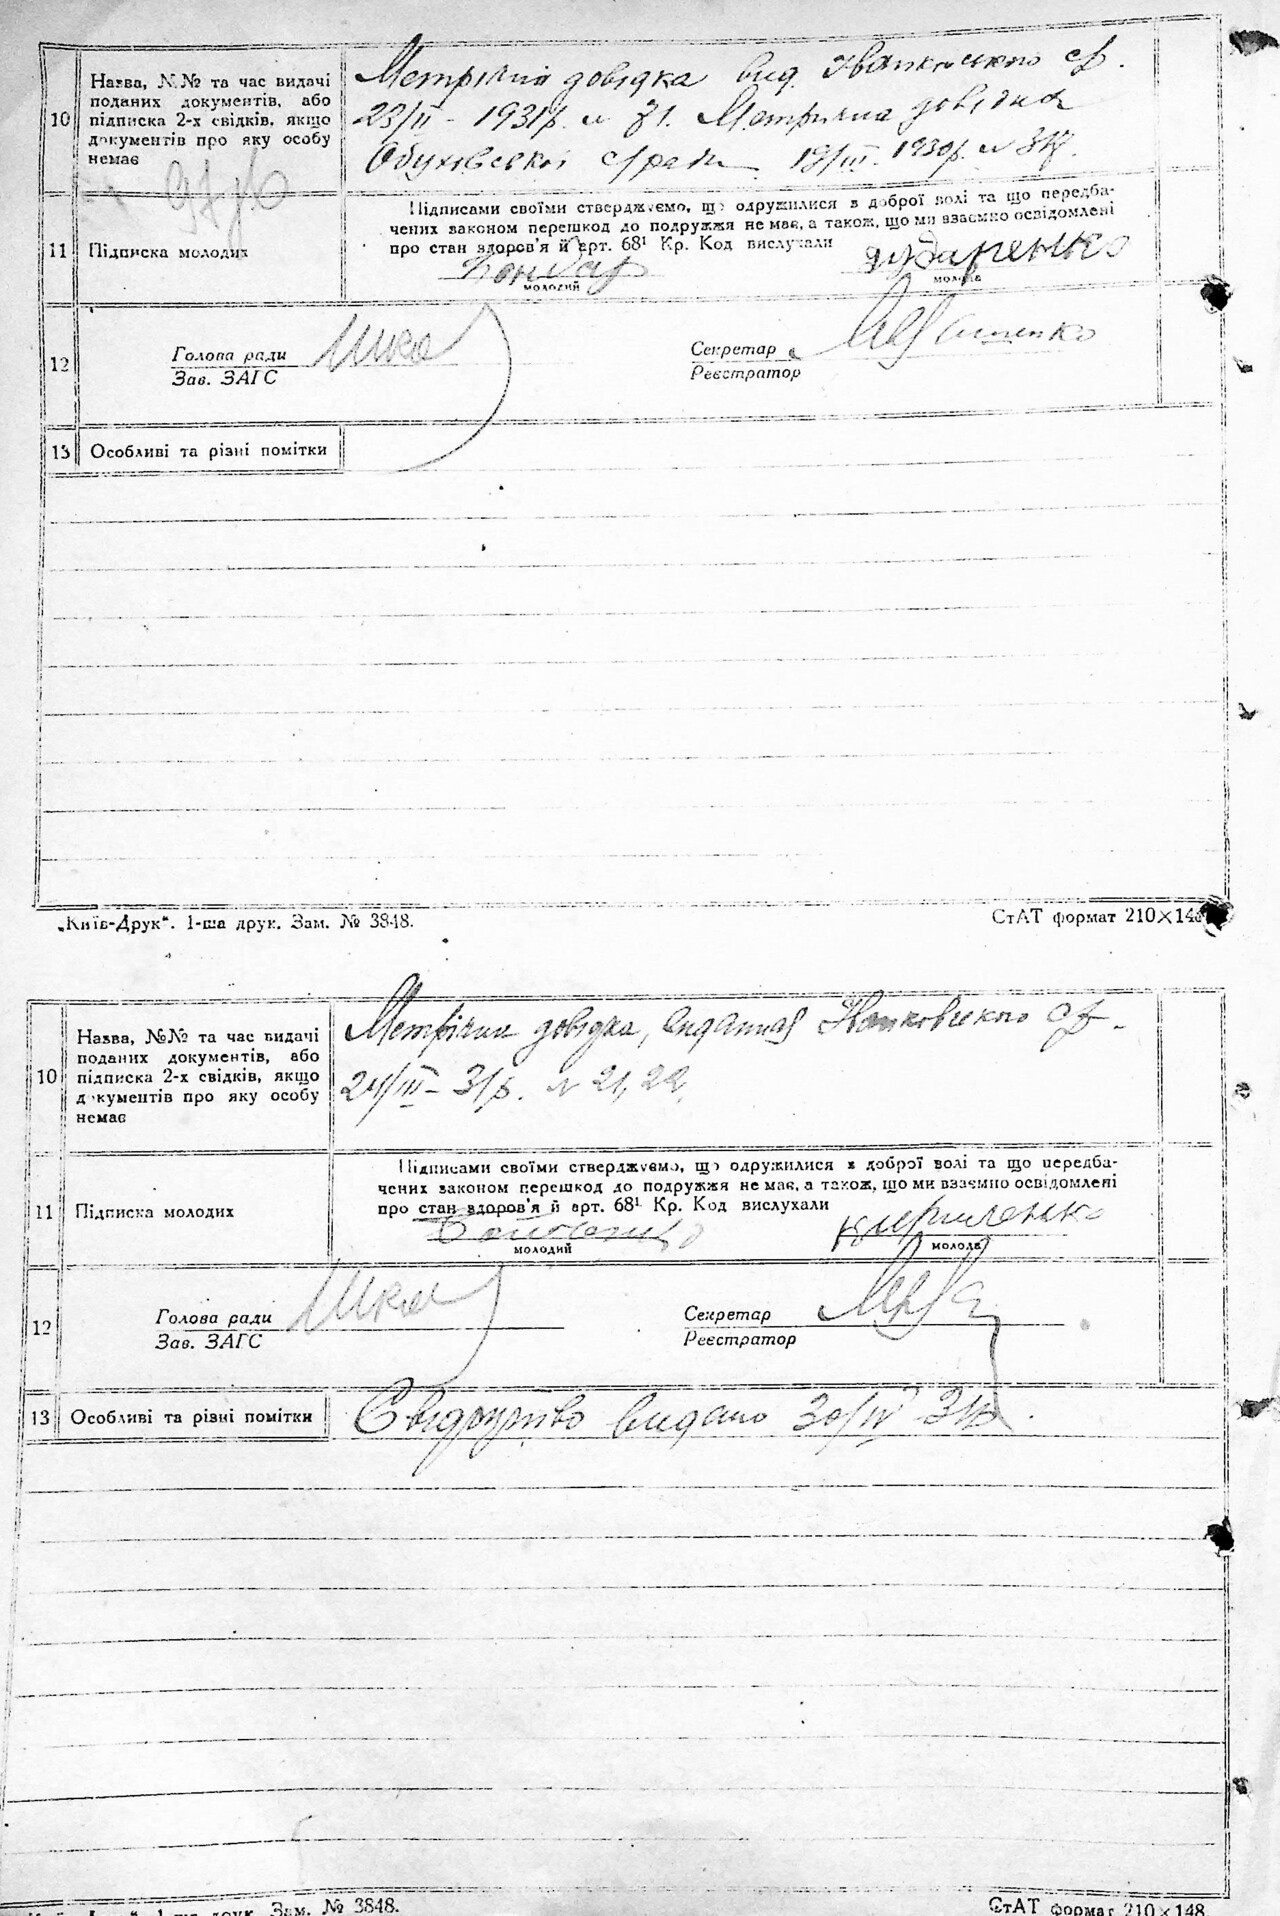 10
Назва, №№ та час видачі
поданих документів, або
підписка 2-х свідків, якщо
документів про яку особу
немає
Метрічна довідка вид. Іванковською с/р.
23/II - 1931р. № 71. Метрична довідка
Обухівської с/ради 19/III. 1930р. №
11
Підписка молодих
Підписами своїми стверджуємо, що одружилися з доброї волі та що передба-
чених законом перешкод до подружжя немає, а також, що ми взаємно освідомлені
про стан здоров'я й арт. 68¹ Кр. Код вислухали
Бондар
молодий
молода
12
Голова ради
Зав. ЗАГС
Секретар
Реєстратор
13
Особливі та різні помітки
„Київ-Друк“. 1-ша друк. Зам. № 3848.
СтАТ формат 210×148
10
Назва, №№ та час видачі
поданих документів, або
підписка 2-х свідків, якщо
документів про яку особу
немає
Метрічна довідка, виданная Іванковською с/р.
24/III - 31р. № 21, 22,
11
Підписка молодих
Підписами своїми стверджуємо, що одружилися з доброї волі та що передба-
чених законом перешкод до подружжя немає, а також, що ми взаємно освідомлені
про стан здоров'я й арт. 68¹ Кр. Код вислухали
Кириленко
молодий
молода
12
Голова ради
Зав. ЗАГС
Секретар
Реєстратор
13
Особливі та різні помітки
Свідоцтво видано 30/IV 31р.
1-ша друк. Зам. № 3848.
СтАТ формат 210×148.